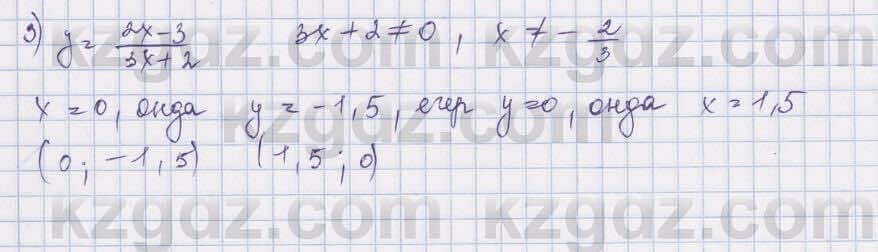 3) y = (2x-3)/(3x+2)   3x+2≠0, x≠-2/3
x=0, онда y=-1,5, егер y=0, онда x=1,5
(0; -1,5) (1,5; 0)
kzgdz.com kzgdz.com
kzgdz.com kzgdz.com
kzgdz.com kzgdz.com